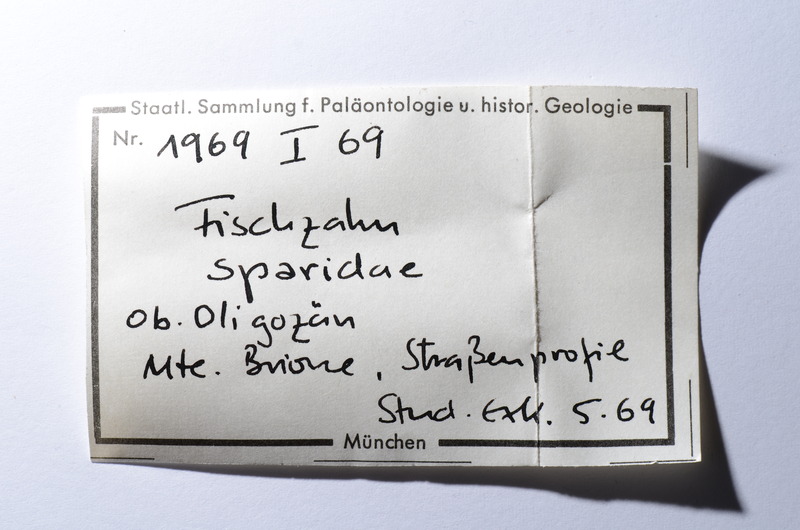 Staatl. Sammlung f. Paläontologie u. histor. Geologie
Nr. 1969 I 69
Fischzahn
Sparidae
Ob. Oligozän
Mte. Brione, Straßenprofil
Stud. Exk. 5.69
München